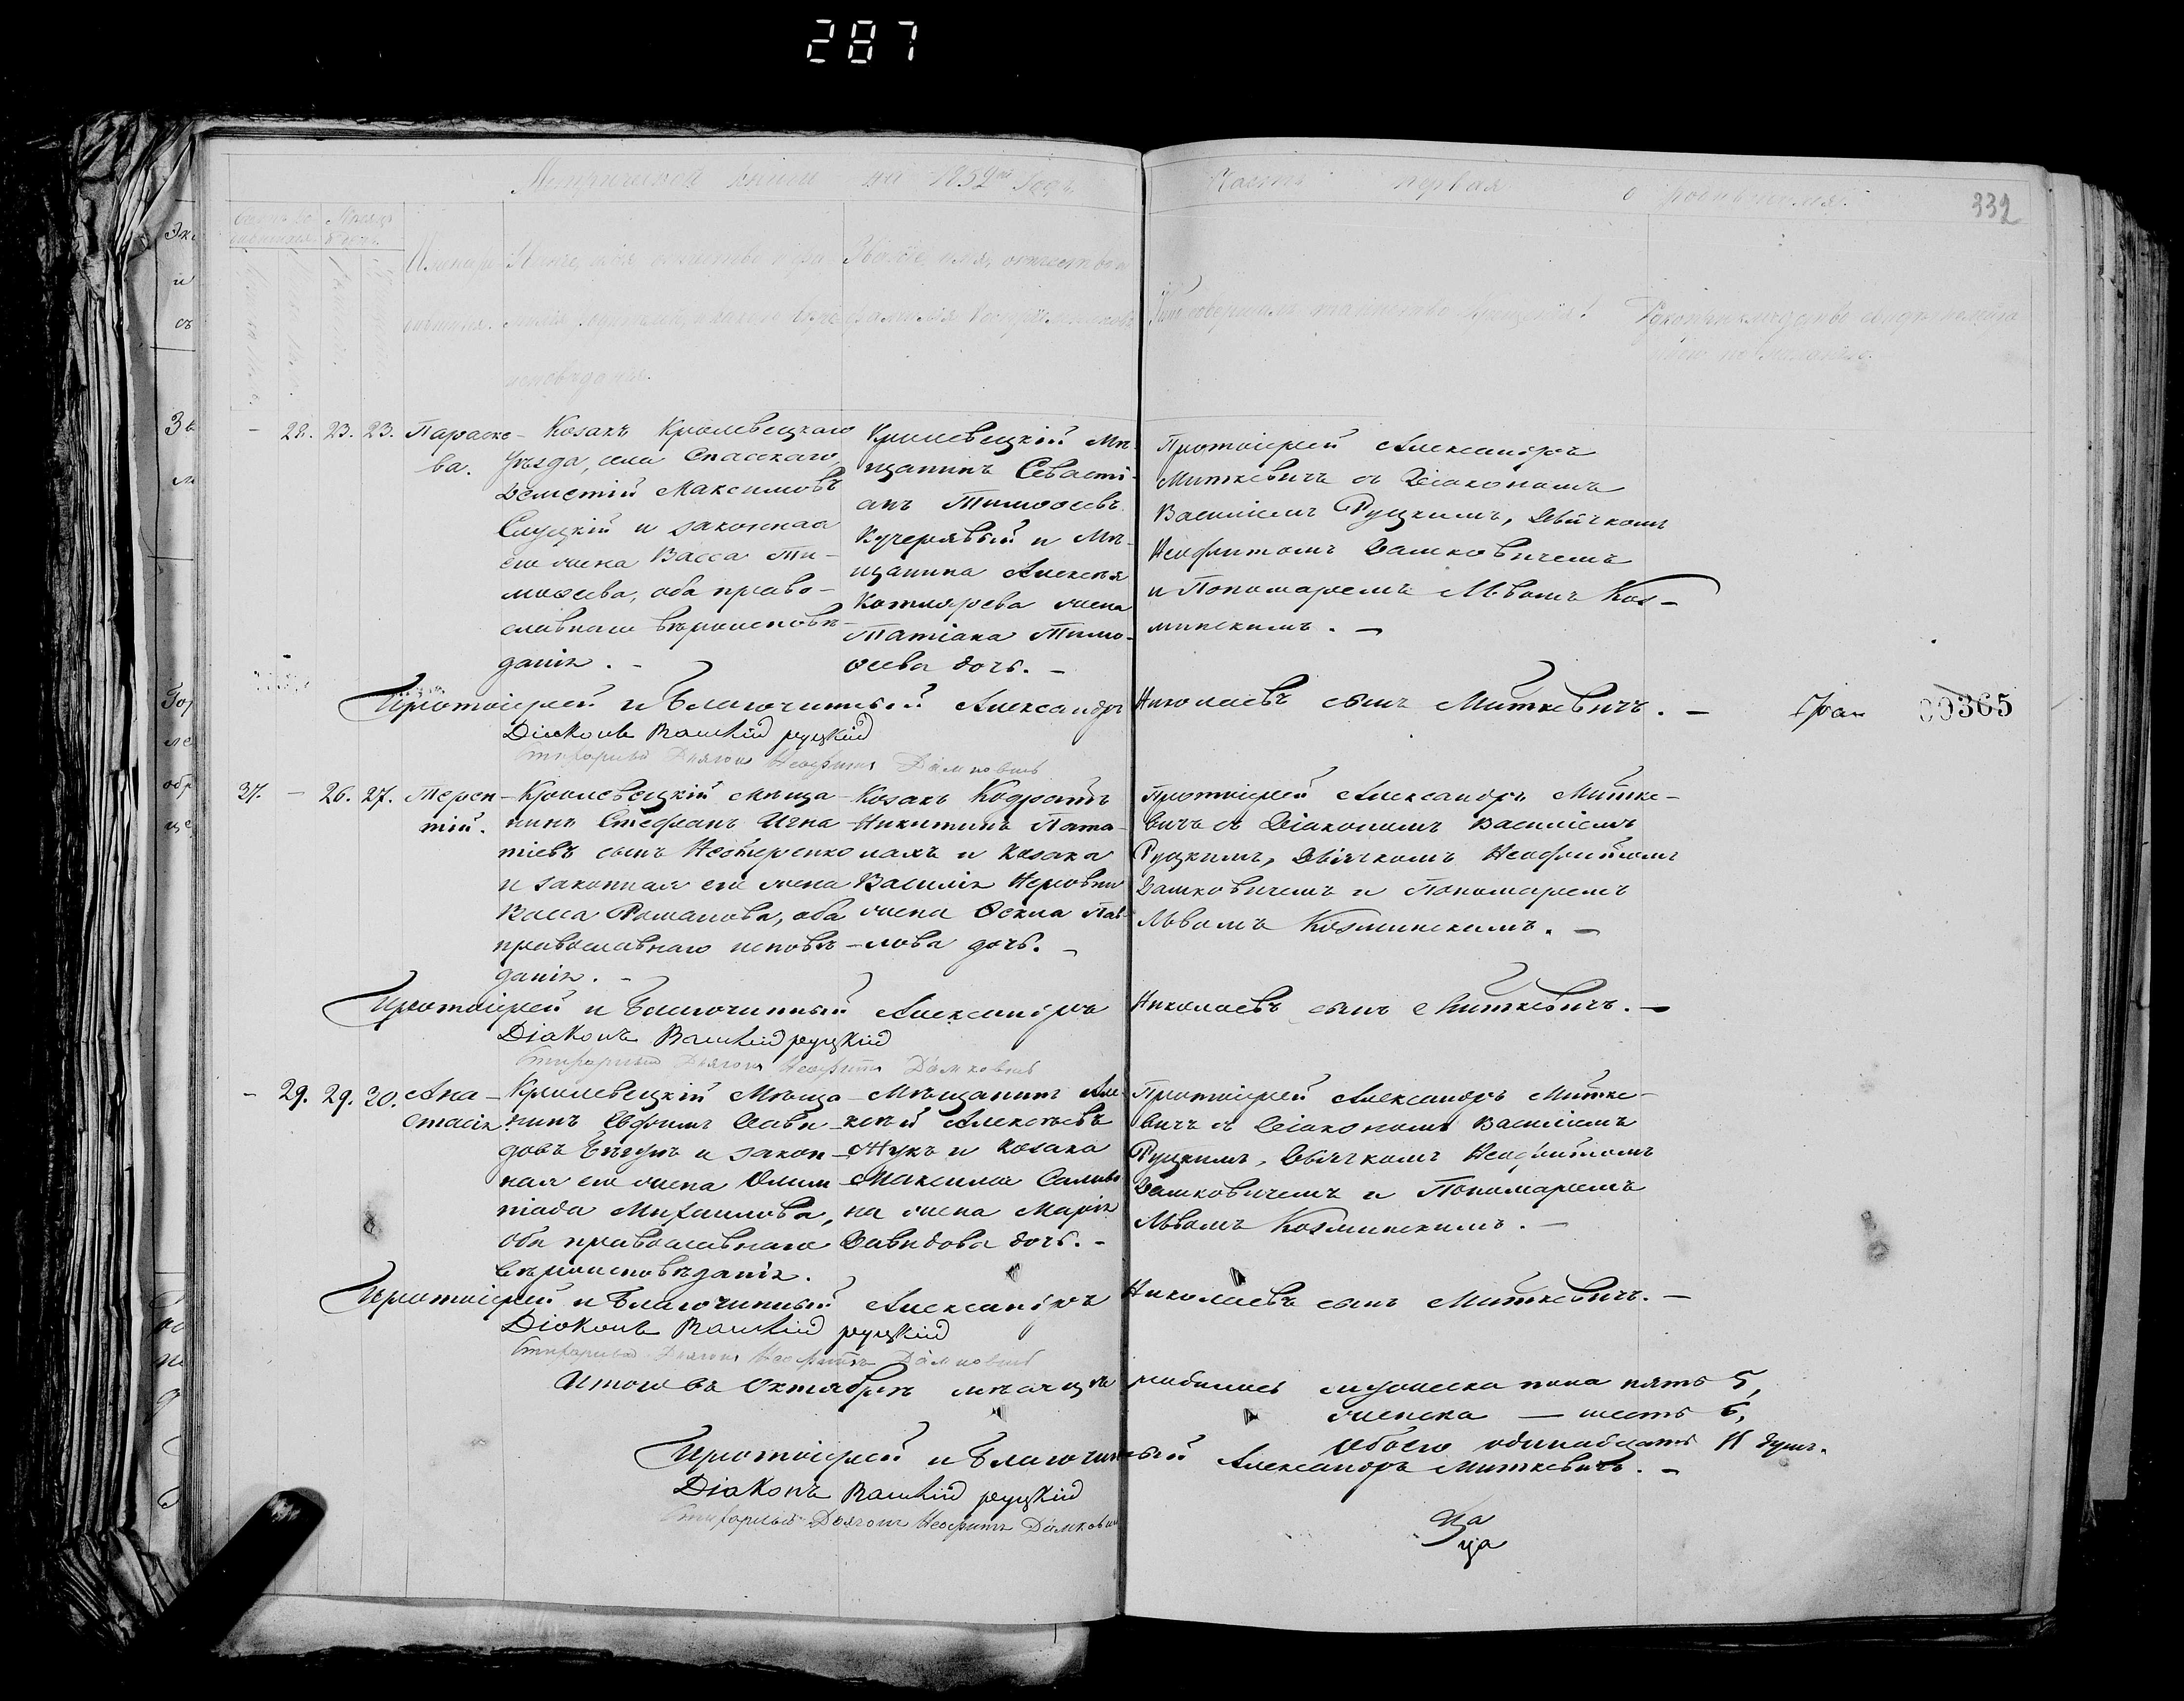 287
Метрической книги на 1852й годъ
Часть первая о родившихся.
332
Имена ро-
дившихся.
Званіе, имя, отчество и фа-
милія родителей, и какого вѣро-
исповѣданія.
Званіе, имя, отчество и
фамилія воспріемниковъ
Кто совершалъ таинство крещенія?
Рукоприкладство свидѣтелей за-
писи по желанію.
- 28. 23. 23.
Параске-
ва.
Козакъ Кролевецкаго
Уѣзда, села Спасскаго
Дементій Максимовъ
Слуцкій и законная
его жена Васса Ти-
моѳеева, оба право-
славнаго вѣроисповѣ-
данія. -
Кролевецкій Мѣ-
щанинъ Севасті-
анъ Тимоѳеевъ
Кучерявый и Мѣ-
щанина Алексѣя
Котлярева жена
Татіана Тимо-
ѳеева дочь. -
Протоіерей Александръ
Миткевичъ съ Діакономъ
Василіемъ Руцкимъ, Дьячкомъ
Неофитомъ Дашковичемъ
и Пономаремъ Львомъ Коз-
минскимъ. -
Протоіерей и Благочинный Александръ Николаевъ сынъ Миткевичъ. -
00365
Діаконъ Василій Руцкій
Стихарный Дьячокъ Неофитъ Дашковичъ
37. - 26. 27.
Терен-
тій.
Кролевецкій мѣща-
нинъ Стефанъ Игна-
тіевъ сынъ Нестеренко
и законная его жена
Васса Романова, оба
православнаго исповѣ-
данія. -
Козакъ Кодратъ
Никитинъ Пота-
пахъ и козака
Василія
жена Ѳекла Пав-
лова дочь. -
Протоіерей Александръ Митке-
вичъ съ Діакономъ Василіемъ
Руцкимъ, Дьячкомъ Неофитомъ
Дашковичемъ и Пономаремъ
Львомъ Козминскимъ. -
Протоіерей и Благочинный Александръ Николаевъ сынъ Миткевичъ. -
Діаконъ Василій Руцкій
Стихарный Дьячокъ Неофитъ Дашковичъ
- 29. 29. 30.
Ана-
стасія
Кролевецкій Мѣща-
нинъ Ефимъ Дави-
довъ Бѣгунъ и закон-
ная его жена Олим-
піада Михаилова,
оба православнаго
вѣроисповѣданія.
Мѣщанинъ Але-
ксѣй Алексѣевъ
Жукъ и козака
Максима Саливо-
на жена Марія
Давидова дочь. -
Протоіерей Александръ Митке-
вичъ съ Діакономъ Василіемъ
Руцкимъ, Дьячкомъ Неофитомъ
Дашковичемъ и Пономаремъ
Львомъ Козминскимъ. -
Протоіерей и Благочинный Александръ Николаевъ сынъ Миткевичъ. -
Діаконъ Василій Руцкій
Стихарный Дьячокъ Неофитъ Дашковичъ
Итого въ Октябрѣ мѣсяцѣ родилось мужеска пола пять 5,
женска - шесть 6,
Обоего одинадцать 11 душъ.
Протоіерей и Благочинный Александръ Миткевичъ. -
Діаконъ Василій Руцкій
Стихарный Дьячокъ Неофитъ Дашковичъ